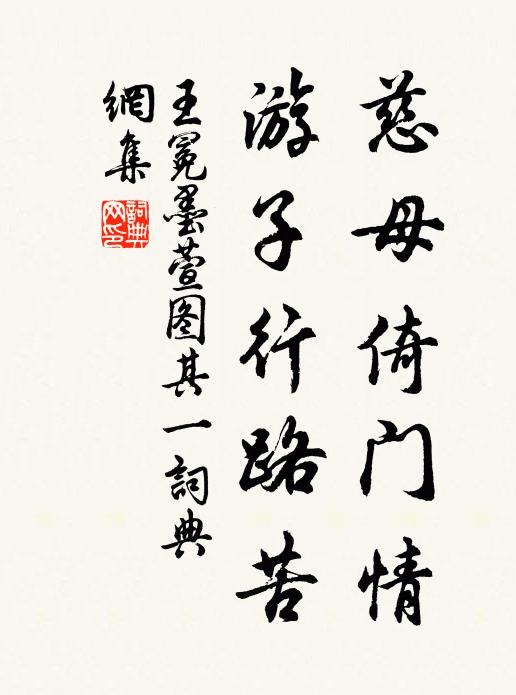 慈母倚門情
游子行路苦
王冕墨萱图其一詞典
網集
詞典
网印